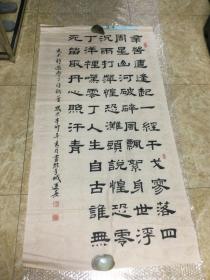 辛苦遭逢起一經干戈寥落四
周星山河破碎風飄絮身世浮
沉雨打萍惶恐灘頭說惶恐零
丁洋裡嘆零丁人生自古誰無
死留取丹心照汗青